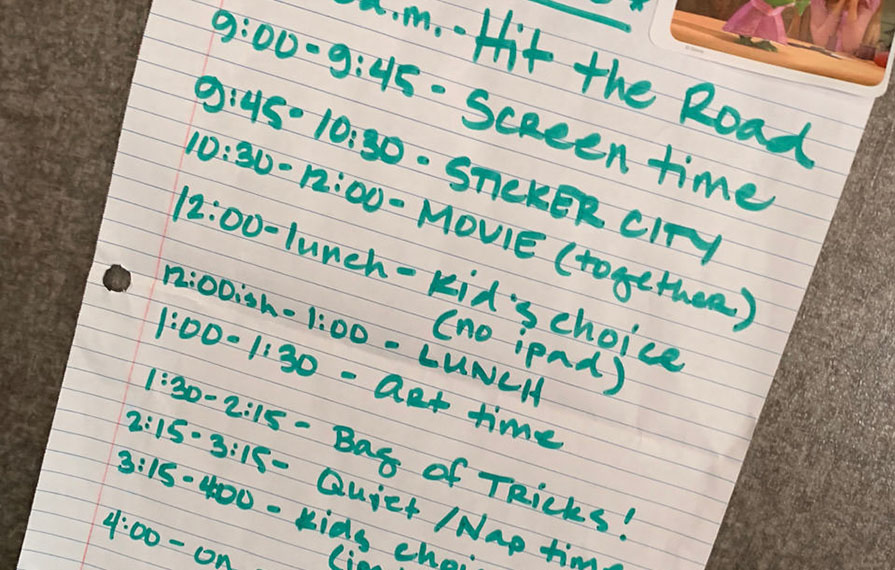 a.m. - Hit the Road
9:00 - 9:45 - Screen time
9:45 - 10:30 - STICKER CITY
10:30 - 12:00 - MOVIE (together)
12:00 - lunch - Kid's choice
(no ipad)
12:00ish - 1:00 - LUNCH
1:00 - 1:30 - Art time
1:30 - 2:15 - Bag of Tricks!
2:15 - 3:15 - Quiet / Nap time
3:15 - 400 - Kids
4:00 - on